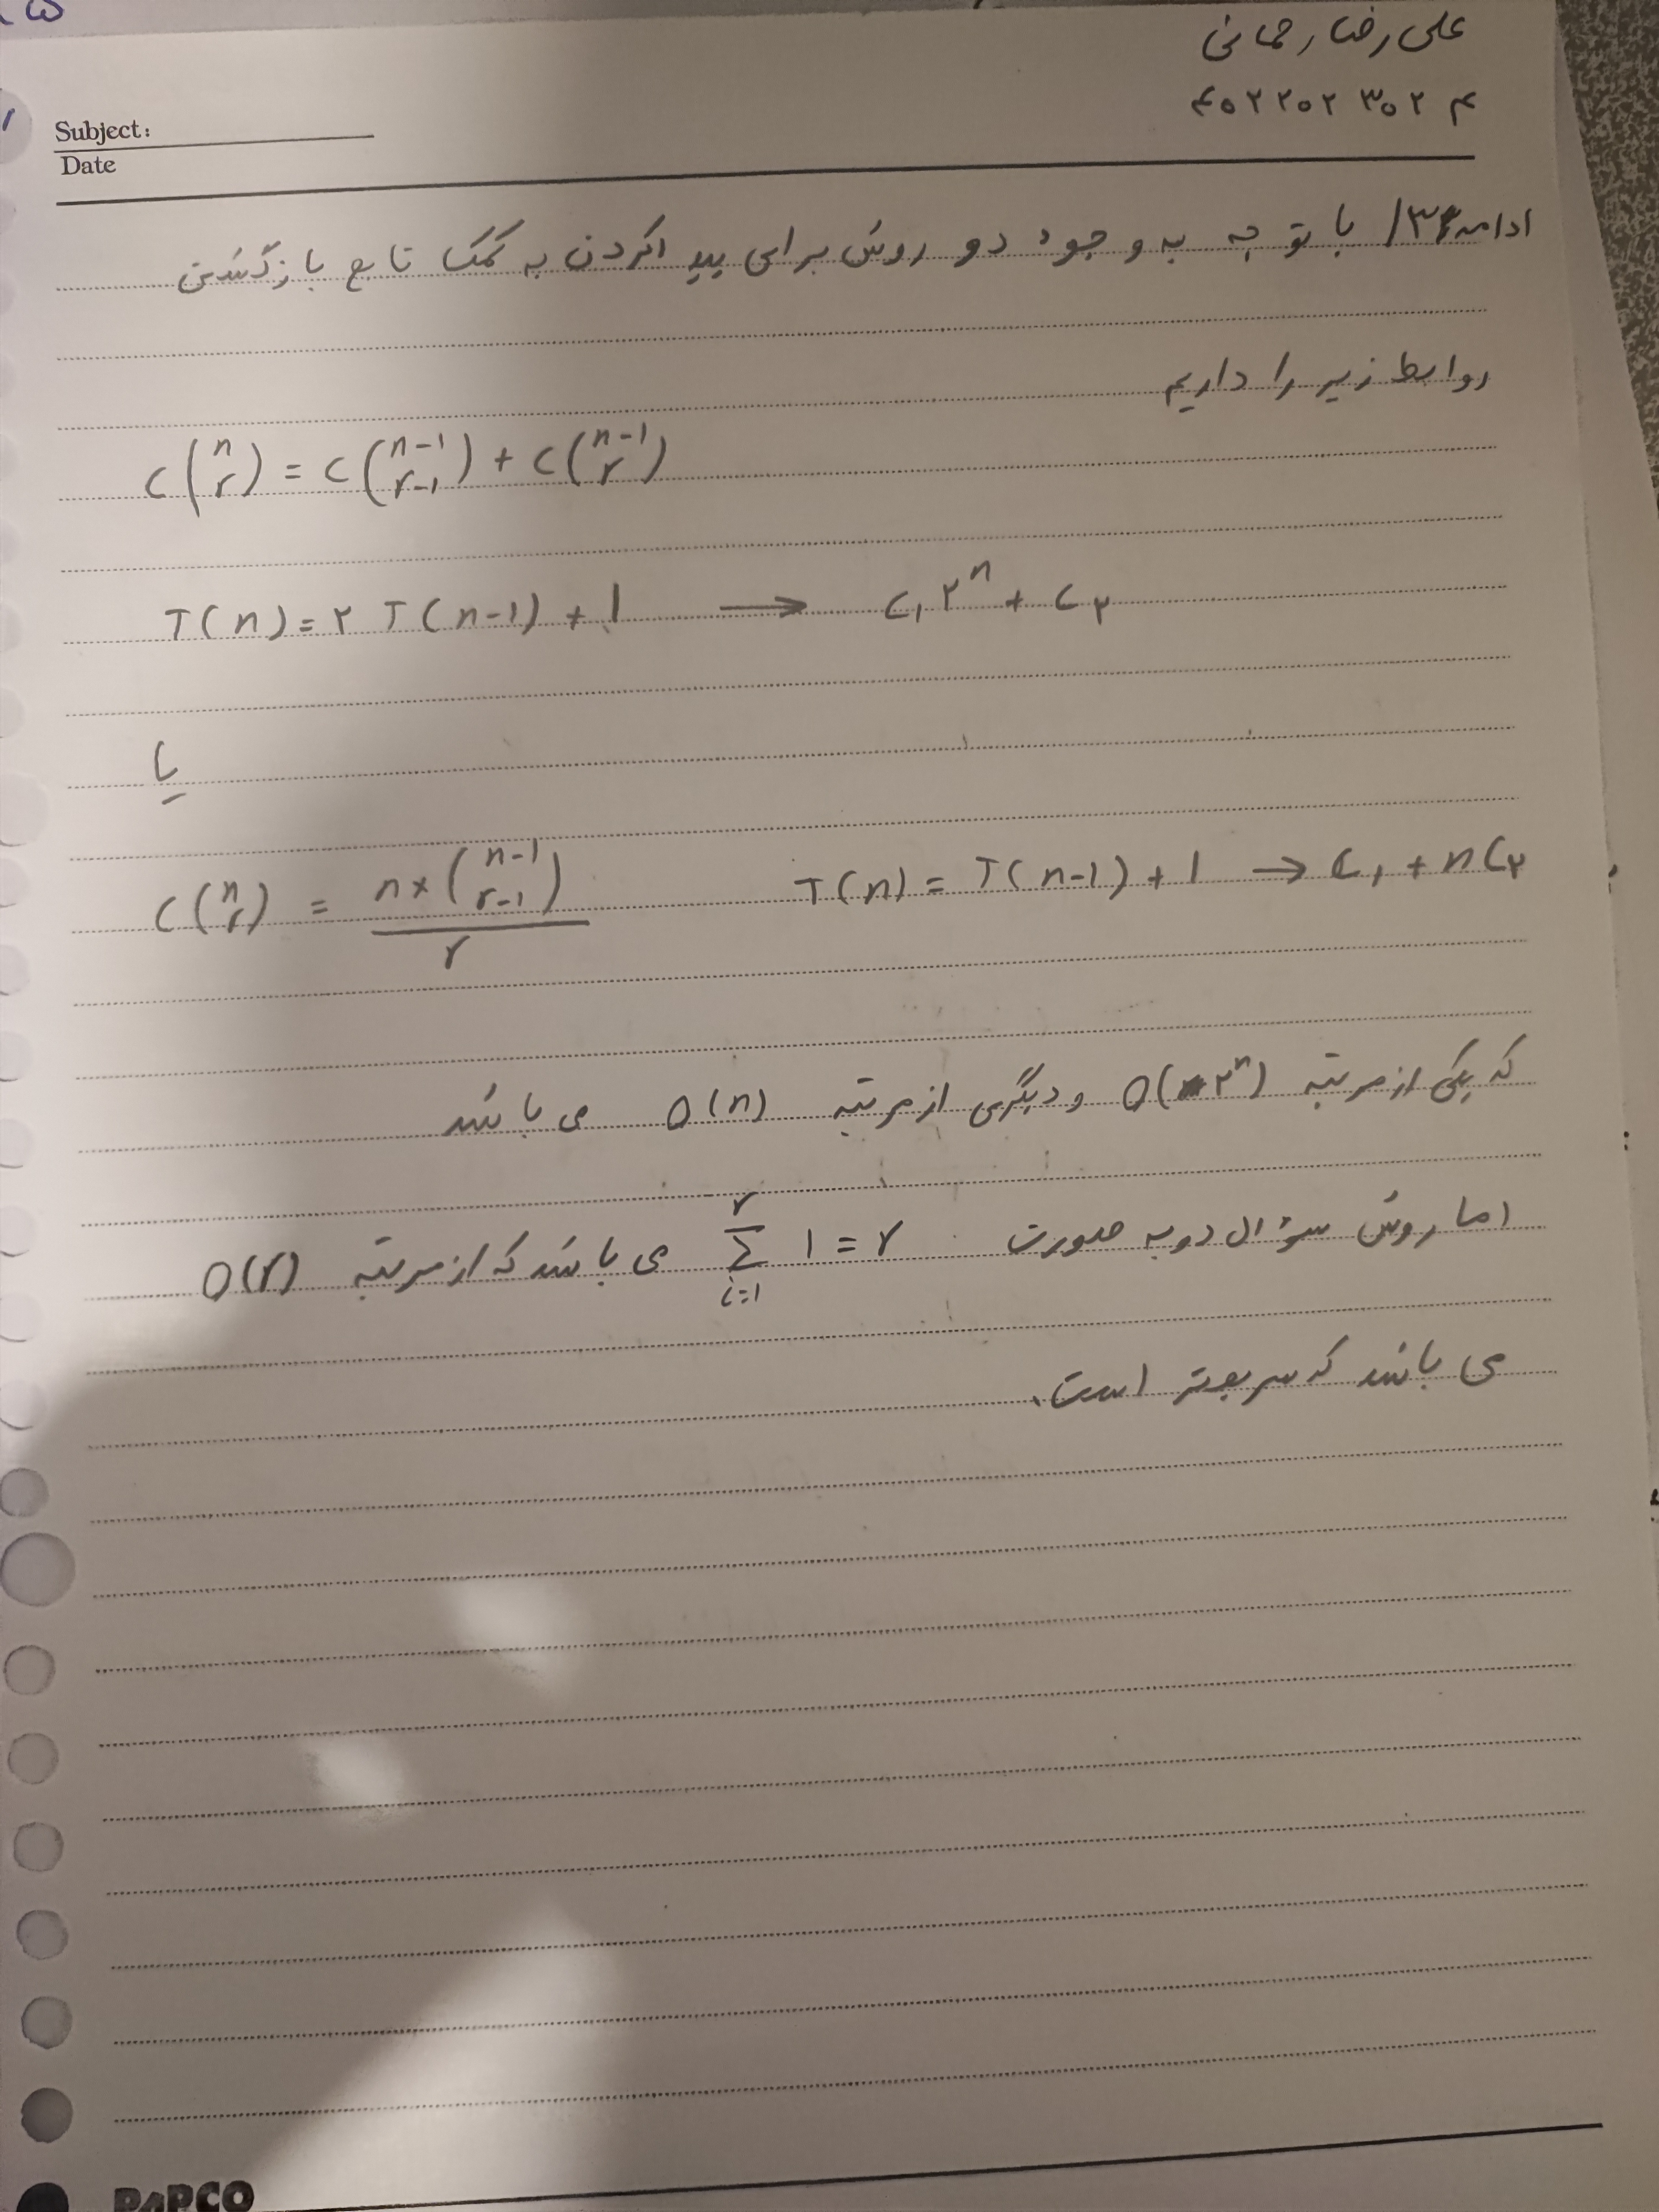 علی رضا رحمانی
۴۰۲۲۰۲۳۰۲۴
Subject:
Date
ادامه ۳/ با توجه به وجود دو روش برای پیدا کردن به کمک تابع بازگشتی
روابط زیر را داریم
C(n r) = C(n-1 r-1) + C(n-1 r)
T(n) = ۲ T(n-1) + 1 → C₁ ۲ⁿ + C۲
یا
C(n r) = n × (n-1 r-1) / r T(n) = T(n-1) + 1 → C₁ + n C۲
که یکی از مرتبه O(۲ⁿ) و دیگری از مرتبه O(n) می باشد
اما روش سؤال دو به صورت Σ i=1 r 1 = r می باشد که از مرتبه O(r)
می باشد که سریعتر است.
PAPCO